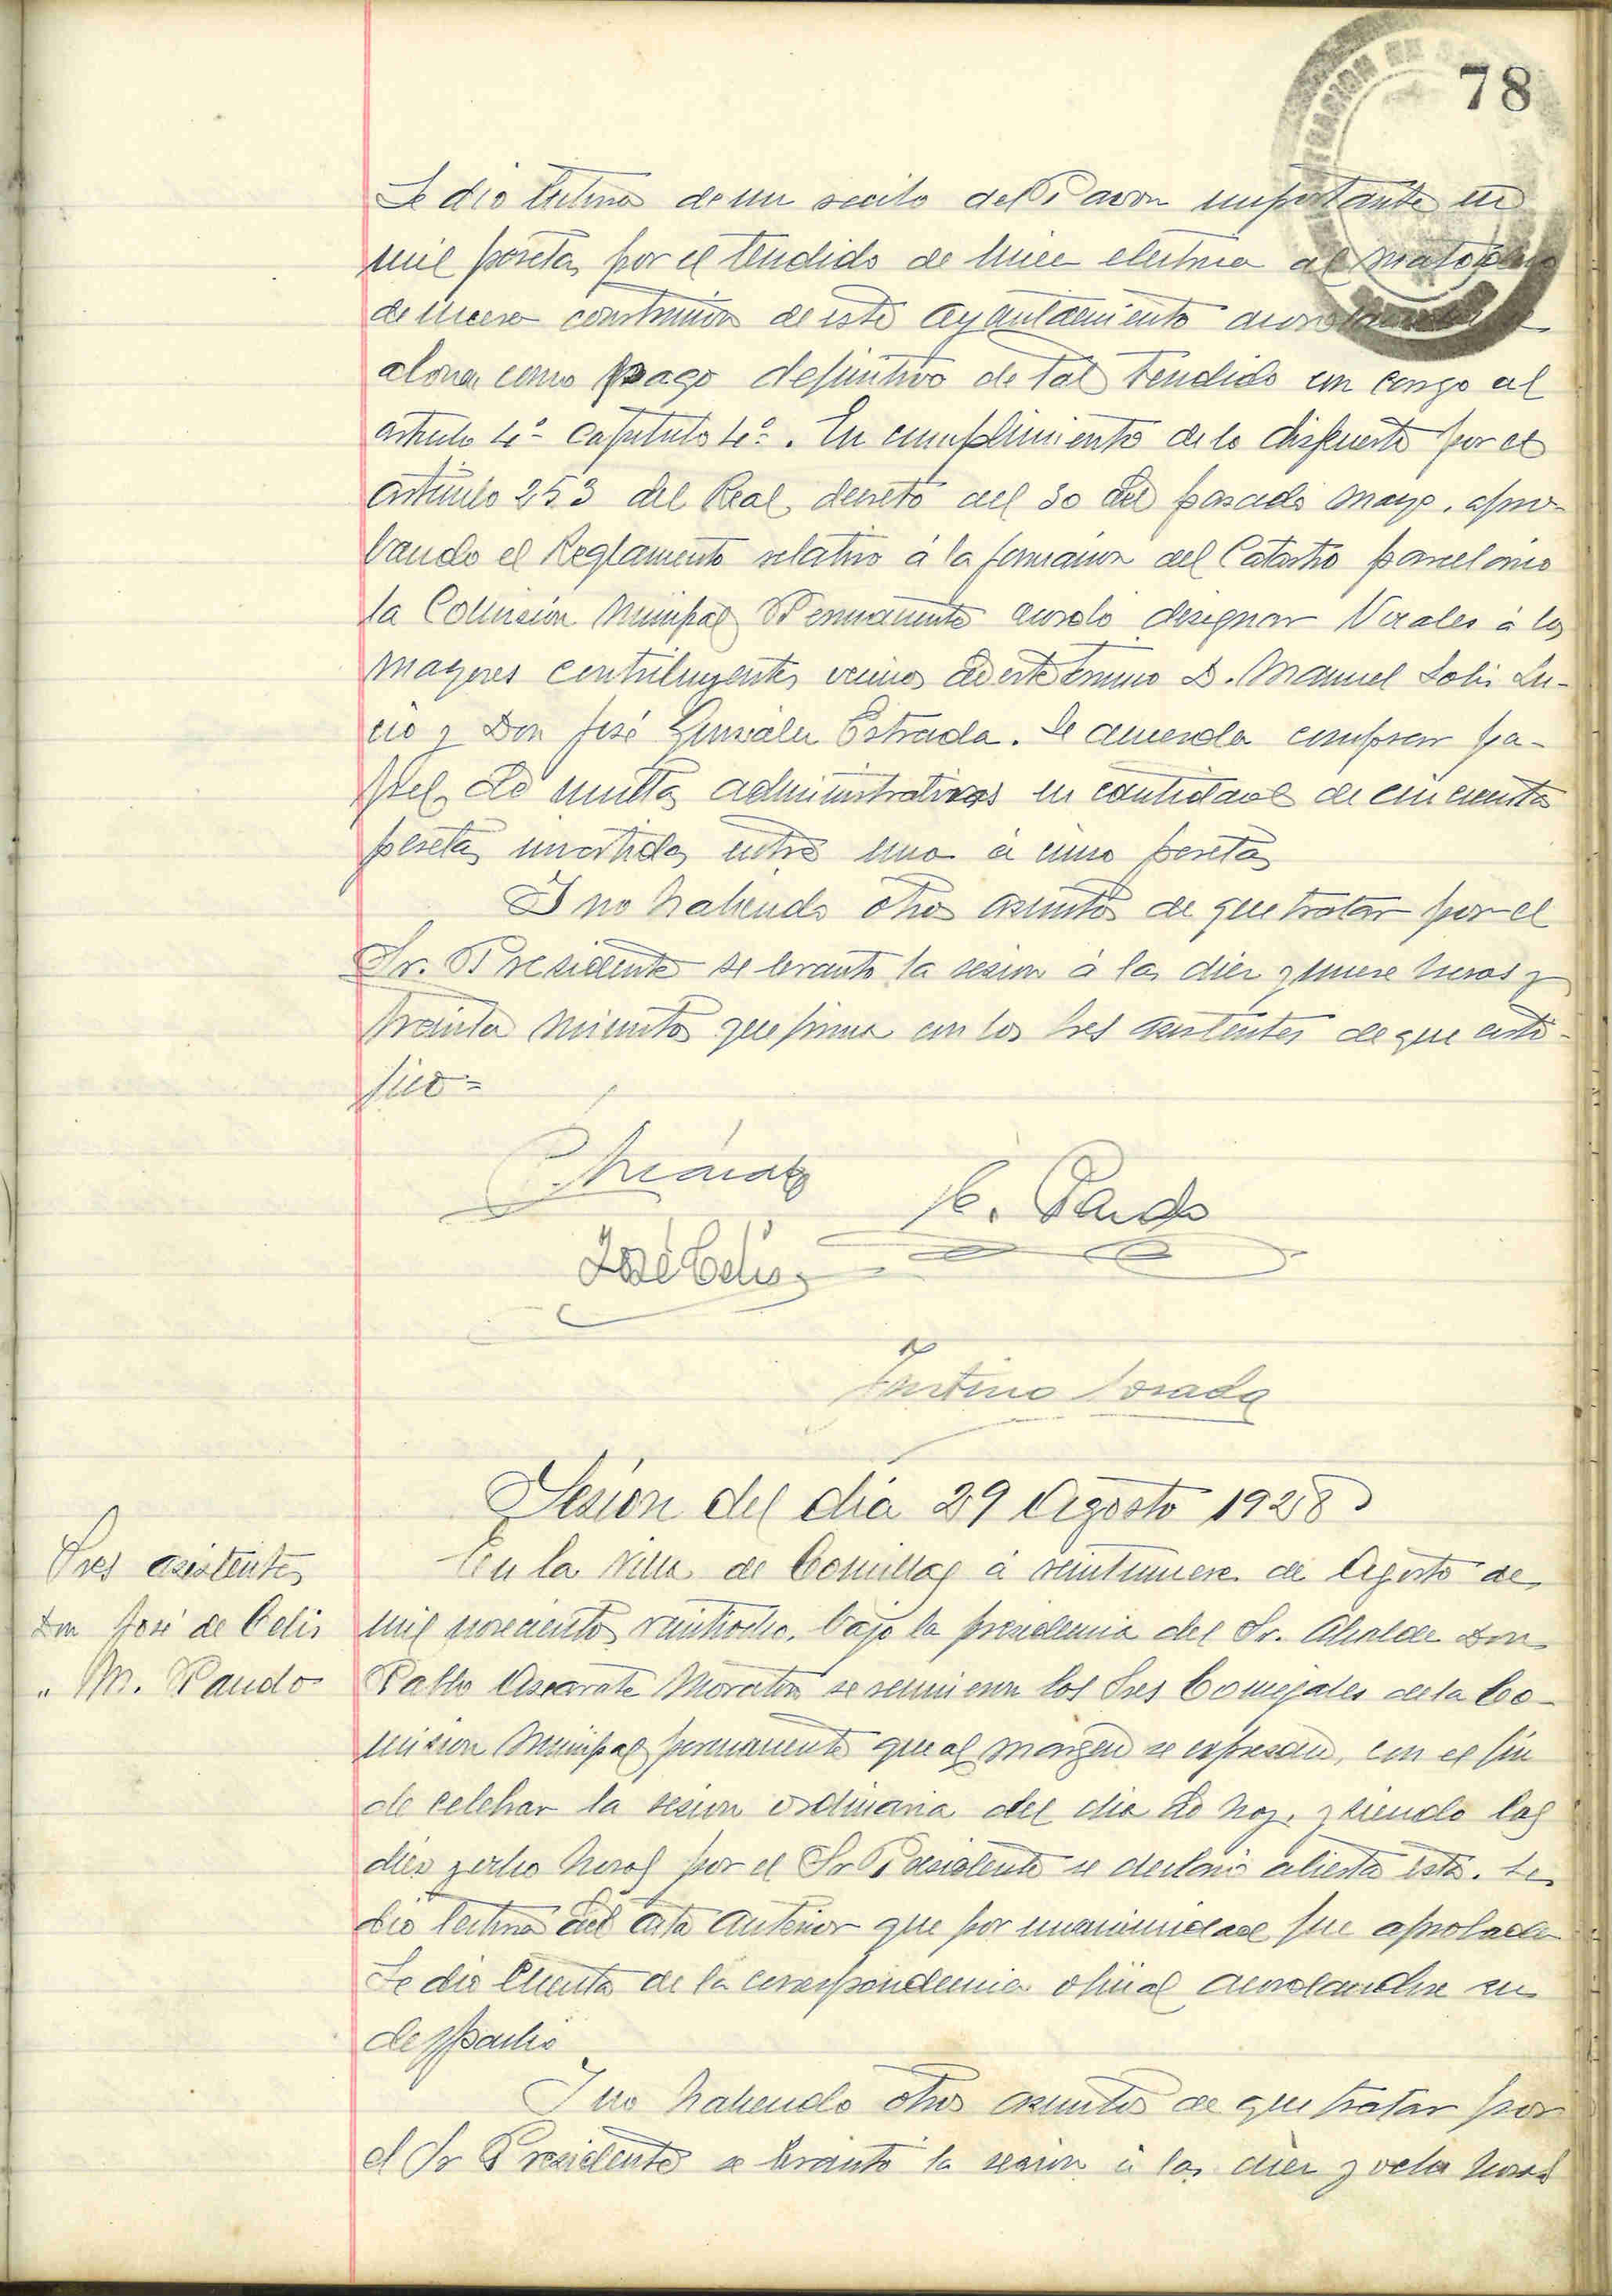 78
Se dio lectura de un recibo del Pavon importante en
mil pesetas por el tendido de linea electrica al matadero
de nueva construccion de este Ayuntamiento
abonar como pago definitivo de tal tendido con cargo al
artículo 4º capitulo 4º. En cumplimiento de lo dispuesto por el
artículo 253 del Real decreto del 30 del pasado Mayo, apro-
bando el Reglamento relativo á la formacion del Catastro parcelario
la Comisión Municipal Permanente acordó designar Vocales á los
mayores contribuyentes vecinos de este término D. Manuel Solis Lu-
cio y Don José González Estrada. Se acuerda comprar pa-
pel de multas administrativas en cantidad de cincuenta
pesetas invertidas entre una á cinco pesetas
Y no habiendo otros asuntos de que tratar por el
Sr. Presidente se levanto la sesion á las diez y nueve horas y
treinta minutos que firma con los Sres asistentes de que certi-
fico=
Pando
José Celis
Losada
Sesión del día 29 Agosto 1928
Sres asistentes
Don José de Celis
" M. Pando
En la Villa de Comillas á veintinueve de Agosto de
mil novecientos veintiocho, bajo la presidencia del Sr. Alcalde Don
Pablo Ascarate Moratin se reunieron los Sres Concejales de la Co-
mision Municipal permanente que al margen se expresan, con el fin
de celebrar la sesion ordinaria del dia de hoy, y siendo las
diez y ocho horas por el Sr Presidente se declaró abierta esta. Se
dio lectura del acta anterior que por unanimidad fue aprobada
Se dio cuenta de la correspondencia oficial acordandose su
despacho
Y no habiendo otros asuntos de que tratar por
el Sr Presidente se levantó la sesión á las diez y ocho horas